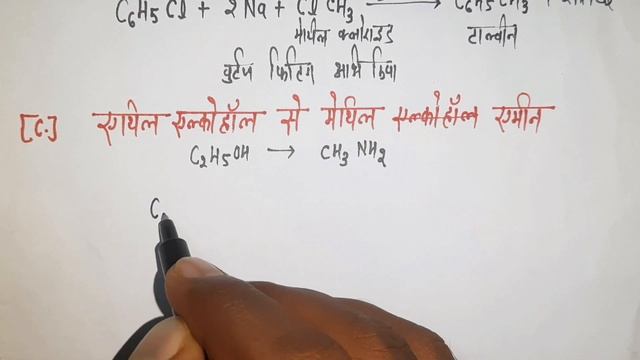 C6H5Cl + 2Na + Cl CH3 → C6H5CH3 +
मेथिल क्लोराइड टाल्वीन
वुर्टज फिटिग अभि क्रिया
[C.] एथिल एल्कोहॉल से मेथिल एल्कोहॉल एमीन
C2H5OH → CH3 NH2
C